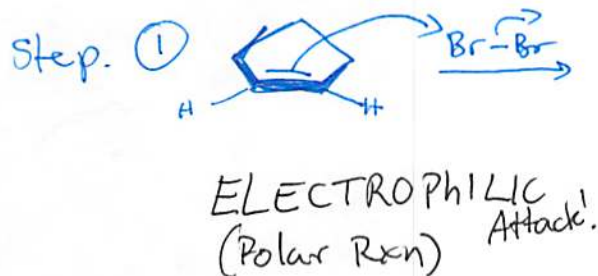 Step. ① Br-Br
H H
ELECTROPhILIC
Attack!
(Polar Rxn)